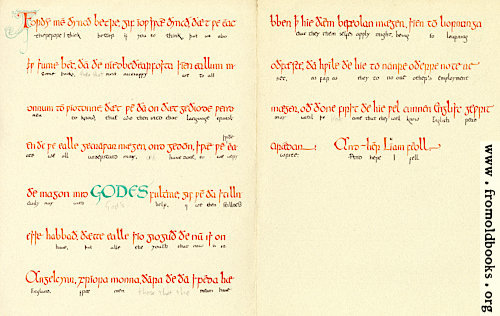 Forðy me ðyncð betre, gif iow swæ ðyncð, ðæt we eac
therefore I think better if you so think, that we also
sume bec, ða ðe niedbeðearfosta sien eallum m
some books, most necessary we to all
onnum to wiotonne, ðæt we ða on ðæt geðiode wen
men to know, that we then into that language
en ðe we ealle gecnawan mægen, ond gedon, swæ we
we all understand may, have done, so we
swiðe
ðe magon mid GODES fultume, gif we ða stilln
may God's help, if we then
esse habbað, ðætte ealle sio gioguð ðe nu is on
have, that all the youth that now is in
Angelcynn, friora monna, ðara ðe ða speda hæ
England, free men those that the means have
bben ðæt hie ðæm befeolan mægen, sien to liornunga
that they them selves apply might, being to learning
oðfæste, ða hwile ðe hie to nanre oðerre note ne
set, as they to no other employment
mægen, oð ðone first ðe hie wel cunnen Englisc gewrit
may until that they well know English
arædan
Ond her Liam feoll
And here I fell
www.fromoldbooks.org